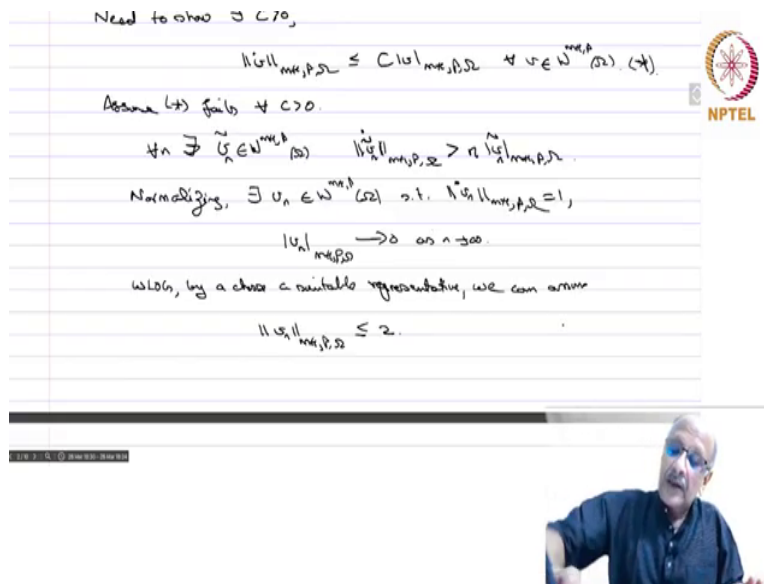 Need to show ∃ C>0,
‖v̇‖_{m+1,p,Ω} ≤ C|v|_{m+1,p,Ω} ∀ v ∈ W^{m+1,p}(Ω). (*)
Assume (*) fails ∀ C>0.
∀n ∃ ṽ_n ∈ W^{m+1,p}(Ω) ‖ṽ̇_n‖_{m+1,p,Ω} > n |ṽ_n|_{m+1,p,Ω}.
Normalizing, ∃ v_n ∈ W^{m+1,p}(Ω) s.t. ‖v̇_n‖_{m+1,p,Ω} = 1,
|v_n|_{m+1,p,Ω} → 0 as n→∞.
WLOG, by a choose a suitable representative, we can assume
‖v_n‖_{m+1,p,Ω} ≤ 2.
NPTEL